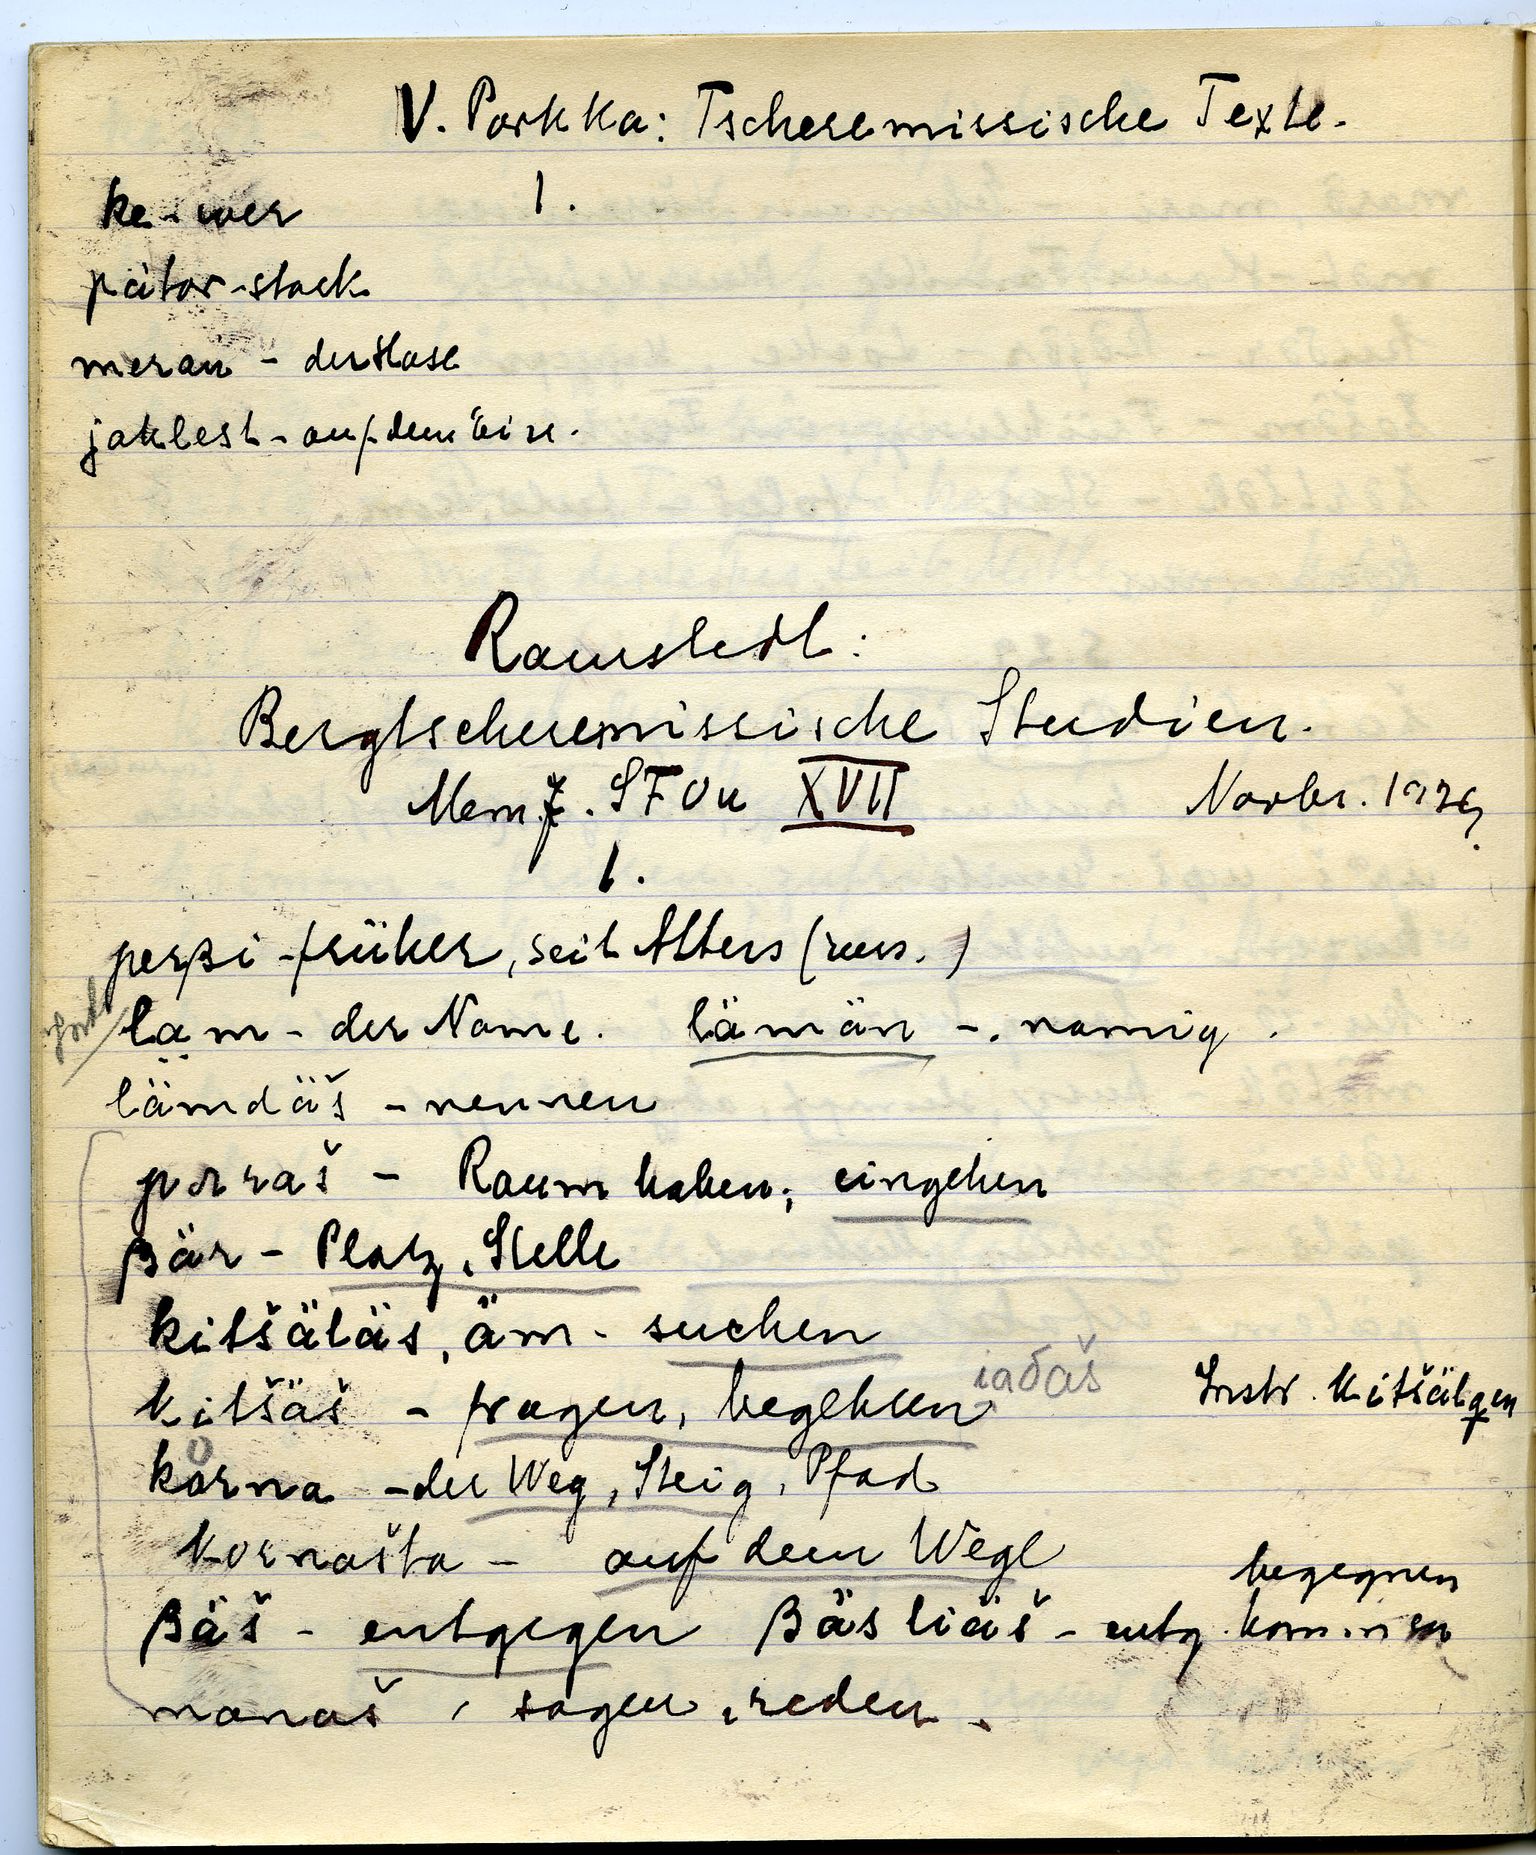 V. Porkka: Tscheremissische Texte.
1.
ke - wer
pätor - stark
meran - der Hase
jaklest - auf dem Eise.
Ramstedt:
Bergtscheremissische Studien.
Mem. SFOu XVII
Novbr. 1926.
1.
perβi - früher, seit Alters (russ.)
läm - der Name. lämän - namig.
lämdäš - nennen
porraš - Raum haben; eingehen
βär - Platz, Stelle
kitšäläs, äm - suchen
kitšäš - fragen, begehren iaδaš
Instr. kitšälgen
korna - der Weg, Steig, Pfad
o
kornašta - auf dem Wege
begegnen
βäš - entgegen βäs liäš - entg. kommen
manaš, sagen, reden.